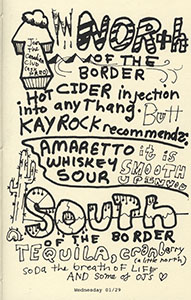 Join the
Cupcake
Club
NOR+h
OF THE
BORDER
HOT CIDER injection
into any Thang. Butt
KAYROCK recommendz.
AMARETTO
WHISKEY
SOUR
it is
SMOOTH
South
OF THE BORDER
TEQUILA, cranberry
(a little north)
SODA the breath of LIFE
AND Some of OJS
Wednesday 01/29